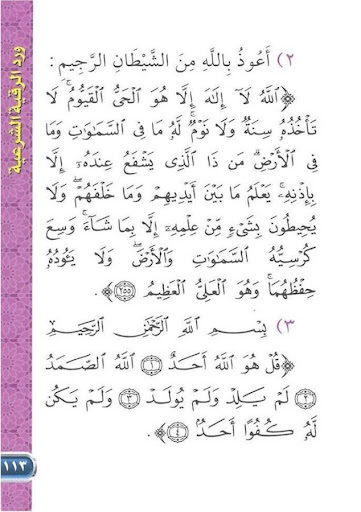 ورد الرقية الشرعية
٢) أَعُوذُ بِاللَّهِ مِنَ الشَّيْطَانِ الرَّجِيمِ :
﴿اللَّهُ لَآ إِلَٰهَ إِلَّا هُوَ الْحَىُّ الْقَيُّومُ ۚ لَا
تَأْخُذُهُۥ سِنَةٌ وَلَا نَوْمٌ ۚ لَّهُۥ مَا فِى السَّمَٰوَٰتِ وَمَا
فِى الْأَرْضِ ۗ مَن ذَا الَّذِى يَشْفَعُ عِندَهُۥٓ إِلَّا
بِإِذْنِهِۦ ۚ يَعْلَمُ مَا بَيْنَ أَيْدِيهِمْ وَمَا خَلْفَهُمْ ۖ وَلَا
يُحِيطُونَ بِشَىْءٍ مِّنْ عِلْمِهِۦٓ إِلَّا بِمَا شَآءَ ۚ وَسِعَ
كُرْسِيُّهُ السَّمَٰوَٰتِ وَالْأَرْضَ ۖ وَلَا يَـُٔودُهُۥ
حِفْظُهُمَا ۚ وَهُوَ الْعَلِىُّ الْعَظِيمُ ﴿٢٥٥﴾﴾ .
٣) بِسْمِ اللَّهِ الرَّحْمَٰنِ الرَّحِيمِ
﴿قُلْ هُوَ اللَّهُ أَحَدٌ ﴿١﴾ اللَّهُ الصَّمَدُ
﴿٢﴾ لَمْ يَلِدْ وَلَمْ يُولَدْ ﴿٣﴾ وَلَمْ يَكُن
لَّهُۥ كُفُوًا أَحَدٌۢ ﴿٤﴾﴾ .
١١٣